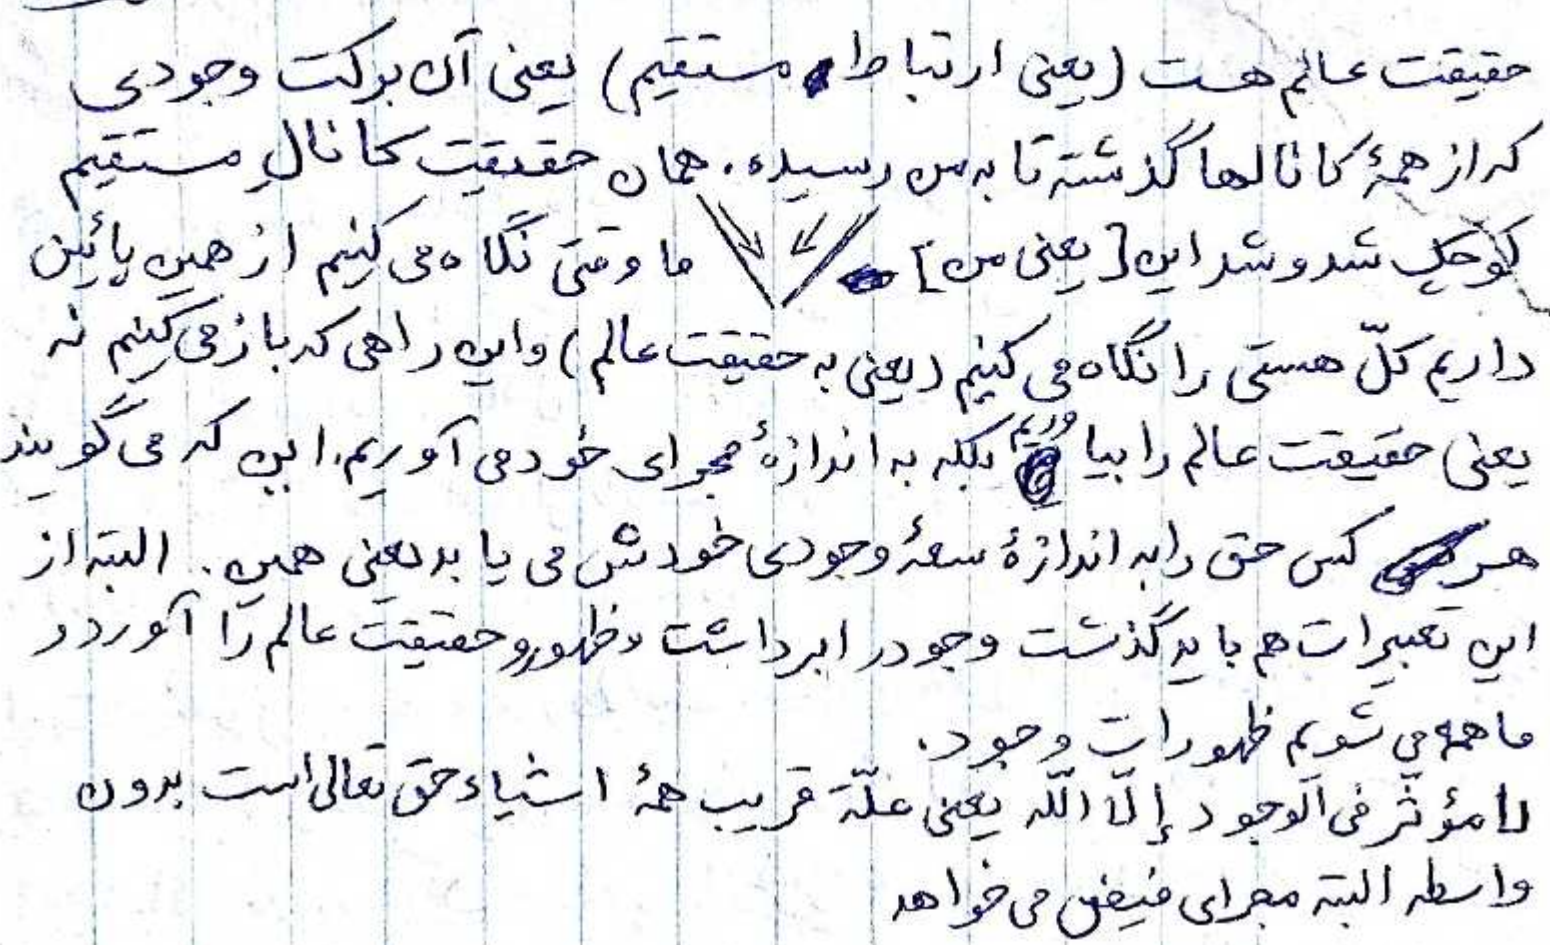 حقیقت عالم هست (یعنی ارتباط مستقیم) یعنی آن برکت وجودی
که از همهٔ کانالها گذشته تا به من رسیده. همان حقیقت کانالِ مستقیم
کوچک شد و شد این [یعنی من] ما وقتی نگاه می کنیم از همین پائین
داریم کلّ هستی را نگاه می کنیم (یعنی به حقیقت عالم) و این راهی که باز می کنیم نه
یعنی حقیقت عالم را بیاوریم بلکه به اندازهٔ مجرای خود می آوریم. این که می گویند
هر کس حق را به اندازهٔ سعهٔ وجودی خودش می یابد یعنی همین. البته از
این تعبیرات هم باید گذشت وجود را برداشت و ظهور و حقیقت عالم را آورد و
ما همه می شویم ظهورات وجود.
لا مؤثّر فی الوجود إلّا اللّه یعنی علّة قریب همهٔ اشیاء حق تعالی است بدون
واسطه البته مجرای فیض می خواهد